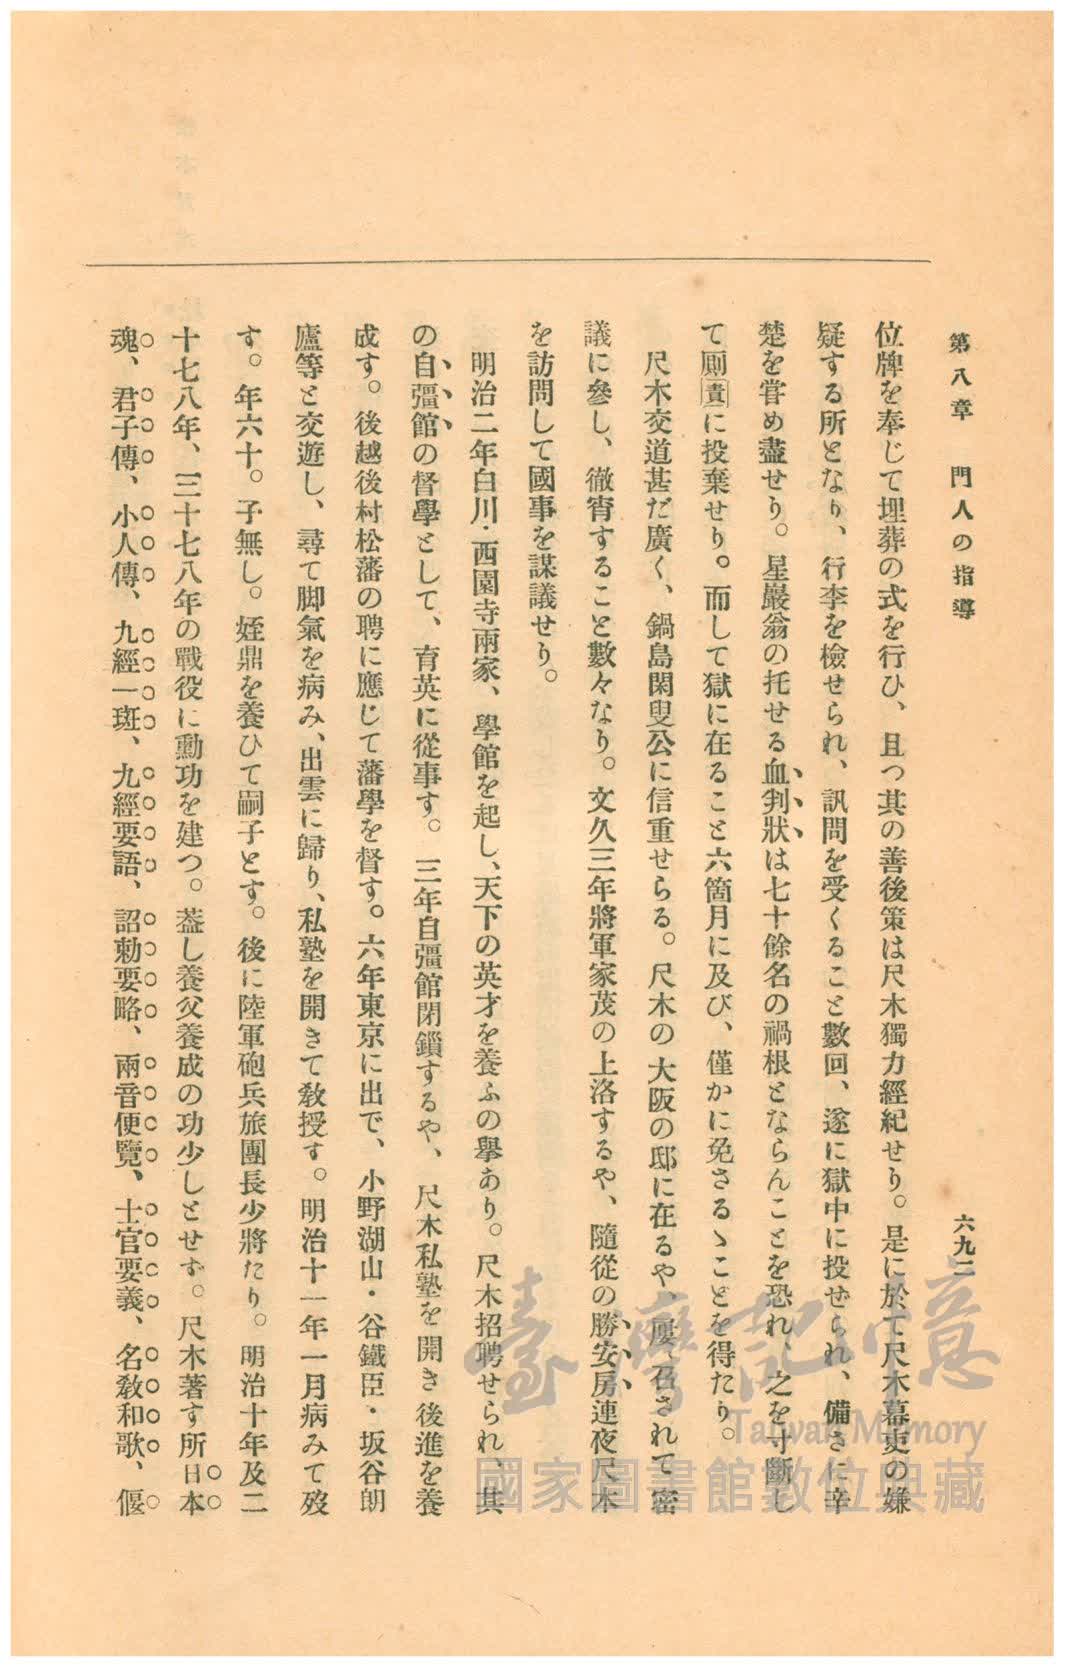 第八章　門人の指導　六九二
位牌を奉じて埋葬の式を行ひ、且つ其の善後策は尺木獨力經紀せり。是に於て尺木幕吏の嫌
疑する所となり、行李を檢せられ、訊問を受くること數回、遂に獄中に投せられ、備さに辛
楚を甞め盡せり。星巖翁の托せる血判狀は七十餘名の禍根とならんことを恐れ、之を寸斷し
て厠［賁］に投棄せり。而して獄に在ること六箇月に及び、僅かに免さるゝことを得たり。
尺木交道甚だ廣く、鍋島閑叟公に信重せらる。尺木の大阪の邸に在るや、屢〻召されて密
議に參し、徹宵すること數々なり。文久三年將軍家茂の上洛するや、隨從の勝安房連夜尺木
を訪問して國事を謀議せり。
明治二年白川・西園寺兩家、學館を起し、天下の英才を養ふの擧あり。尺木招聘せられ、其
の自彊館の督學として、育英に從事す。三年自彊館閉鎖するや、尺木私塾を開き後進を養
成す。後越後村松藩の聘に應じて藩學を督す。六年東京に出で、小野湖山・谷鐵臣・坂谷朗
廬等と交遊し、尋て脚氣を病み、出雲に歸り、私塾を開きて敎授す。明治十一年一月病みて歿
す。年六十。子無し。姪鼎を養ひて嗣子とす。後に陸軍砲兵旅團長少將たり。明治十年及二
十七八年、三十七八年の戰役に勳功を建つ。蓋し養父養成の功少しとせず。尺木著す所日本
魂、君子傳、小人傳、九經一斑、九經要語、詔勅要略、兩音便覽、士官要義、名敎和歌、偃
臺灣記憶
Taiwan Memory
國家圖書館數位典藏